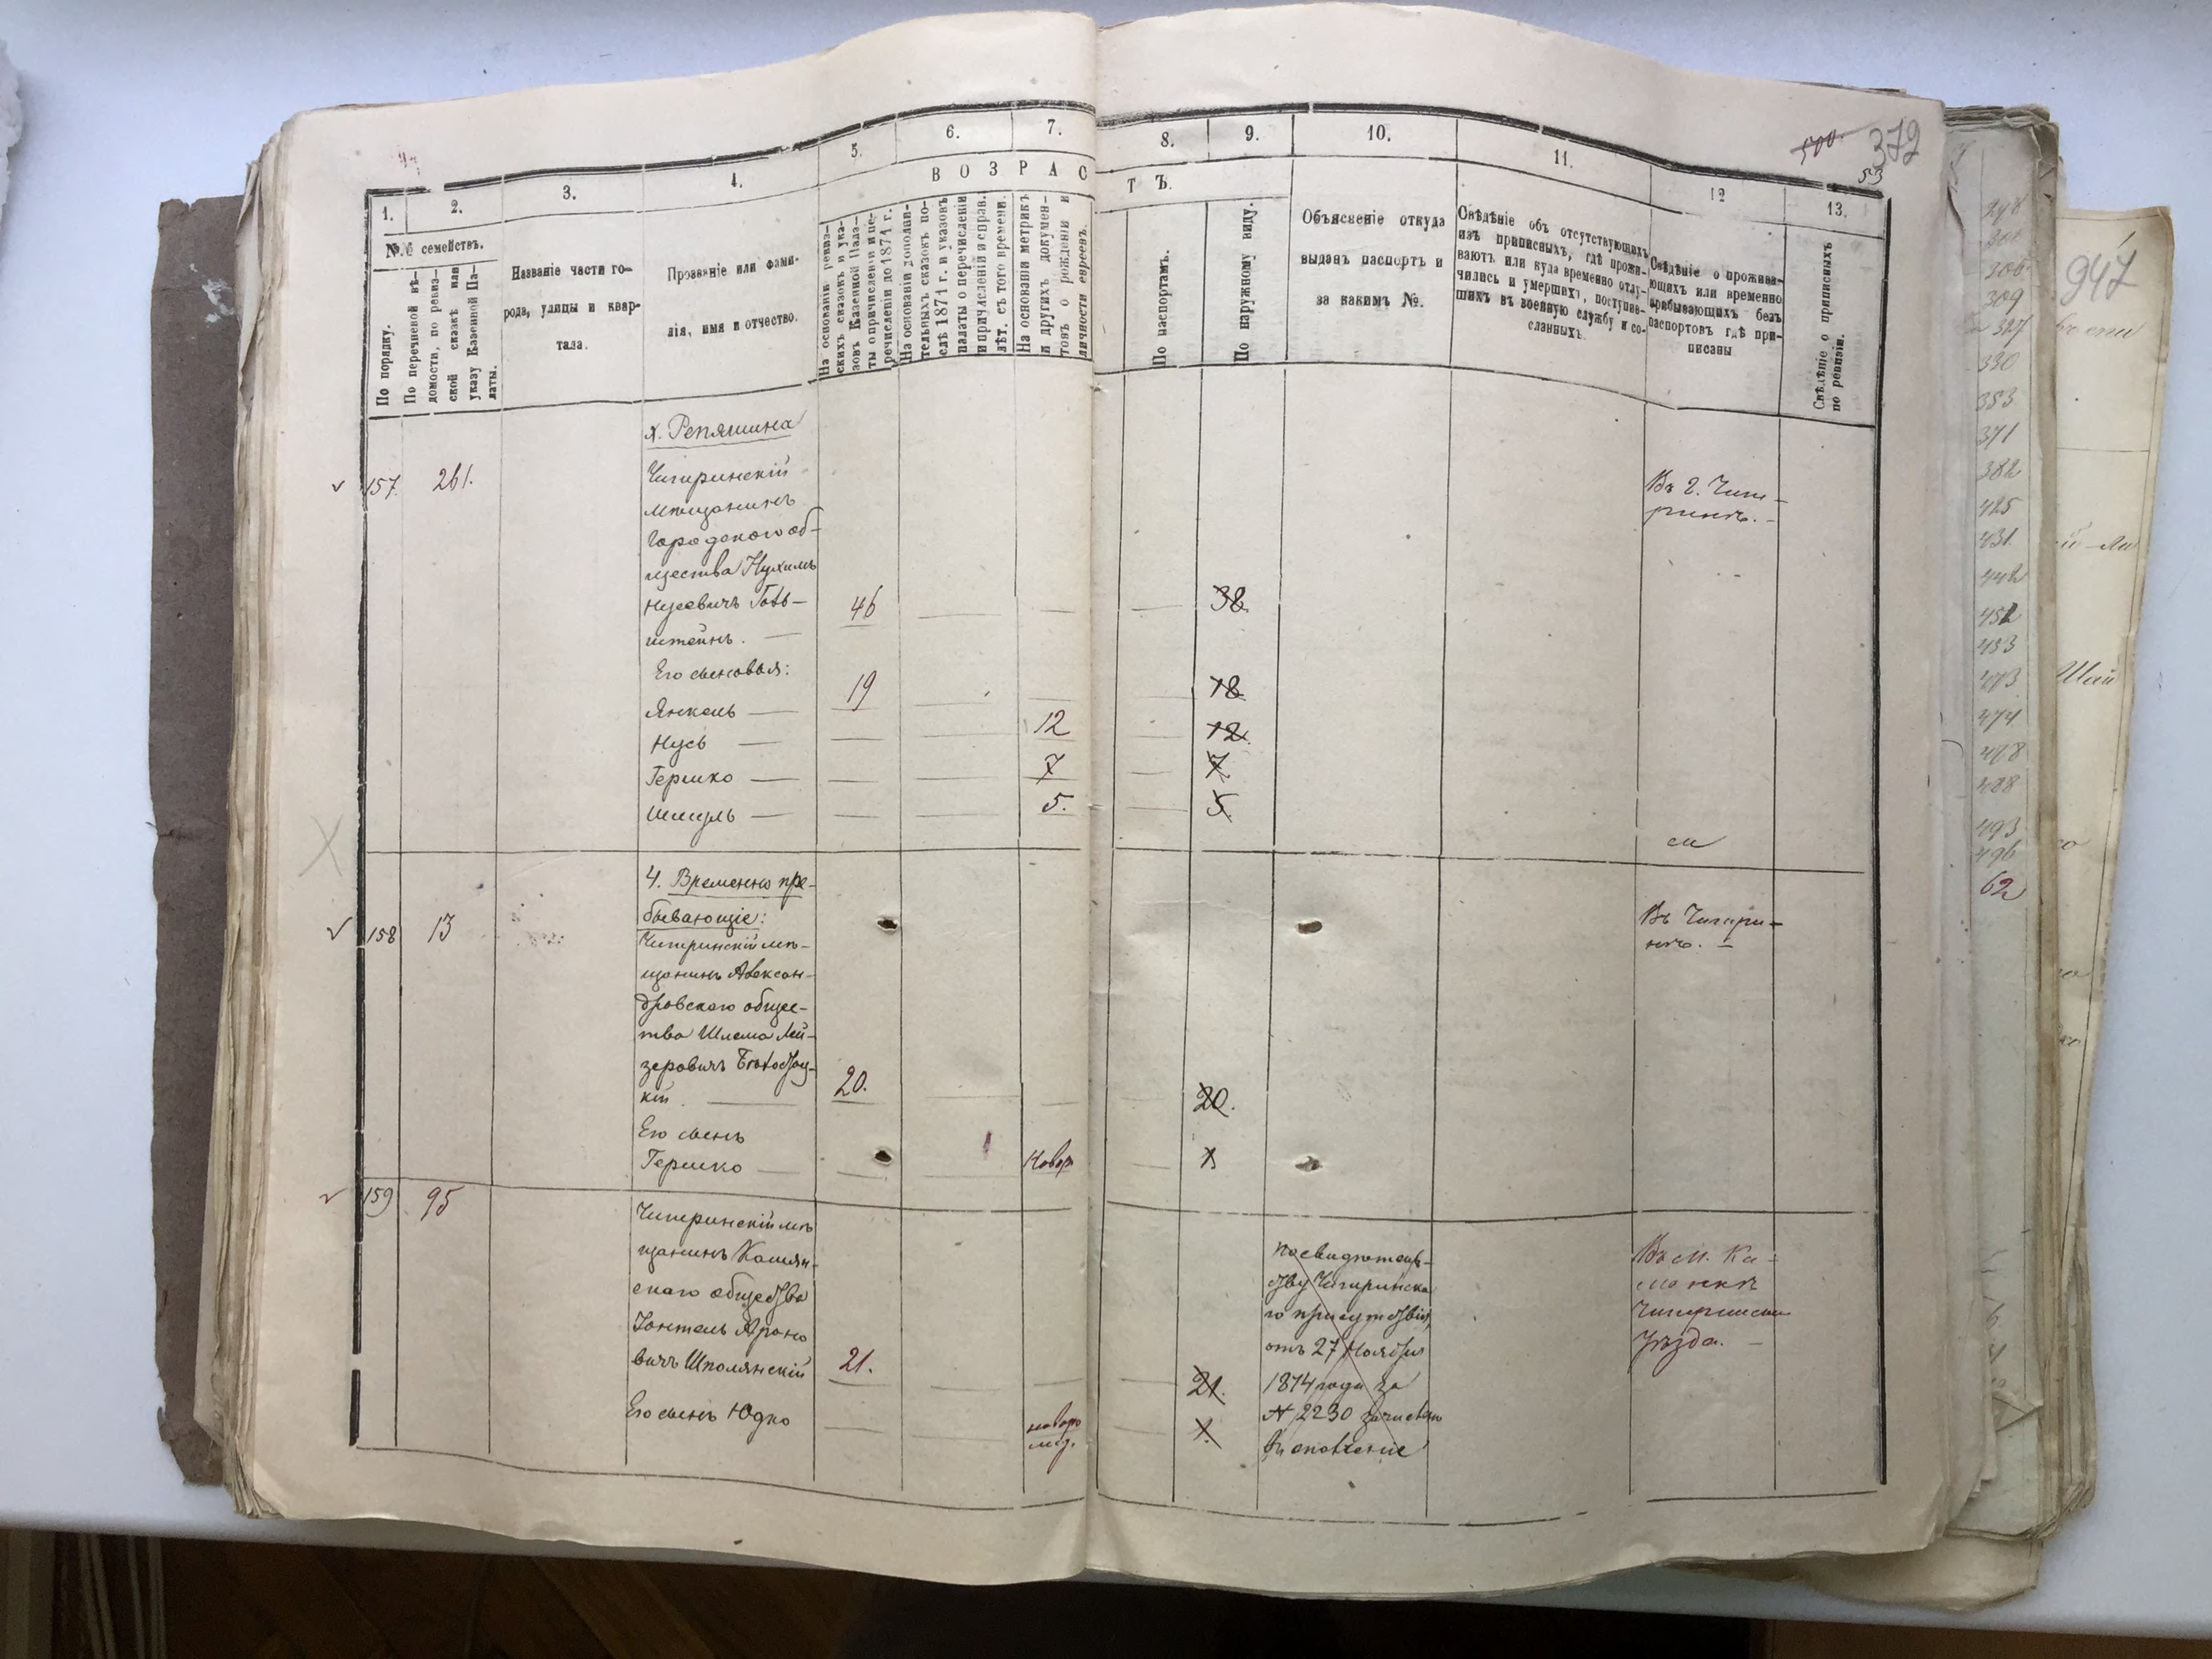 500. 379
53
1.
2.
3.
4.
5.
6.
7.
8.
9.
10.
11.
12
13.
ВОЗРАС
ТЪ.
№№ семействъ.
По порядку.
По перечневой вѣ-
домости, по ревиз-
ской сказкѣ или
указу Казенной Па-
латы.
Названіе части го-
рода, улицы и квар-
тала.
Прозваніе или фами-
лія, имя и отчество.
На основаніи ревиз-
скихъ сказокъ и ука-
зовъ Казенной Пала-
ты о причисленіи и пе-
речисленіи до 1871 г.
На основаніи дополни-
тельныхъ сказокъ по-
слѣ 1871 г. и указовъ
палаты о перечисленіи
и причисленіи и справ.
лѣт. съ того времени.
На основаніи метрикъ
и другихъ докумен-
товъ о рожденіи и
личности евреевъ.
По паспортамъ.
По наружному виду.
Объясненіе откуда
выданъ паспортъ и
за какимъ №.
Свѣдѣніе объ отсутствующихъ
изъ приписныхъ, гдѣ прожи-
ваютъ или куда временно отлу-
чились и умершихъ, поступив-
шихъ въ военную службу и со-
сланныхъ.
Свѣдѣніе о прожива-
ющихъ или временно
прибывающихъ безъ
паспортовъ гдѣ при-
писаны
Свѣдѣніе о приписныхъ
по ревизіи.
х. Репяшина
157. 261.
Чигиринскій
мѣщанинъ
Городскаго об-
щества Нухимъ
Нусевичъ Голь- 46 38
штейнъ.
Въ г. Чиги-
ринѣ.
Его сыновья:
Янкель 19 18
Нусь 12 12
Гершко 7 7
Шмуль 5. 5
4. Временно пре-
бывающіе:
158 13
Чигиринскій мѣ-
щанинъ Алексан-
дровскаго общес-
тва Шлема Лей-
зеровичъ Бѣлоцер-
кій 20. 20.
Въ Чигири-
нѣ.
Его сынъ
Гершко Новор 1
159 95
Чигиринскій мѣ
щанинъ Камян-
скаго общества
Іонтель Ароно
вичъ Шполянскій 21. 21.
Его сынъ Юдко новоро
мід. 1.
по свидѣтель-
ству Чигиринска
го присутствія
отъ 27 Ноября
1874 года за
№ 2230 зачисленъ
въ ополченіе
Въ м. Ка-
менкѣ
Чигиринскаго
уѣзда.
947
330
353
371
382
425
431
442
452
453
474
478
488
493
496
62